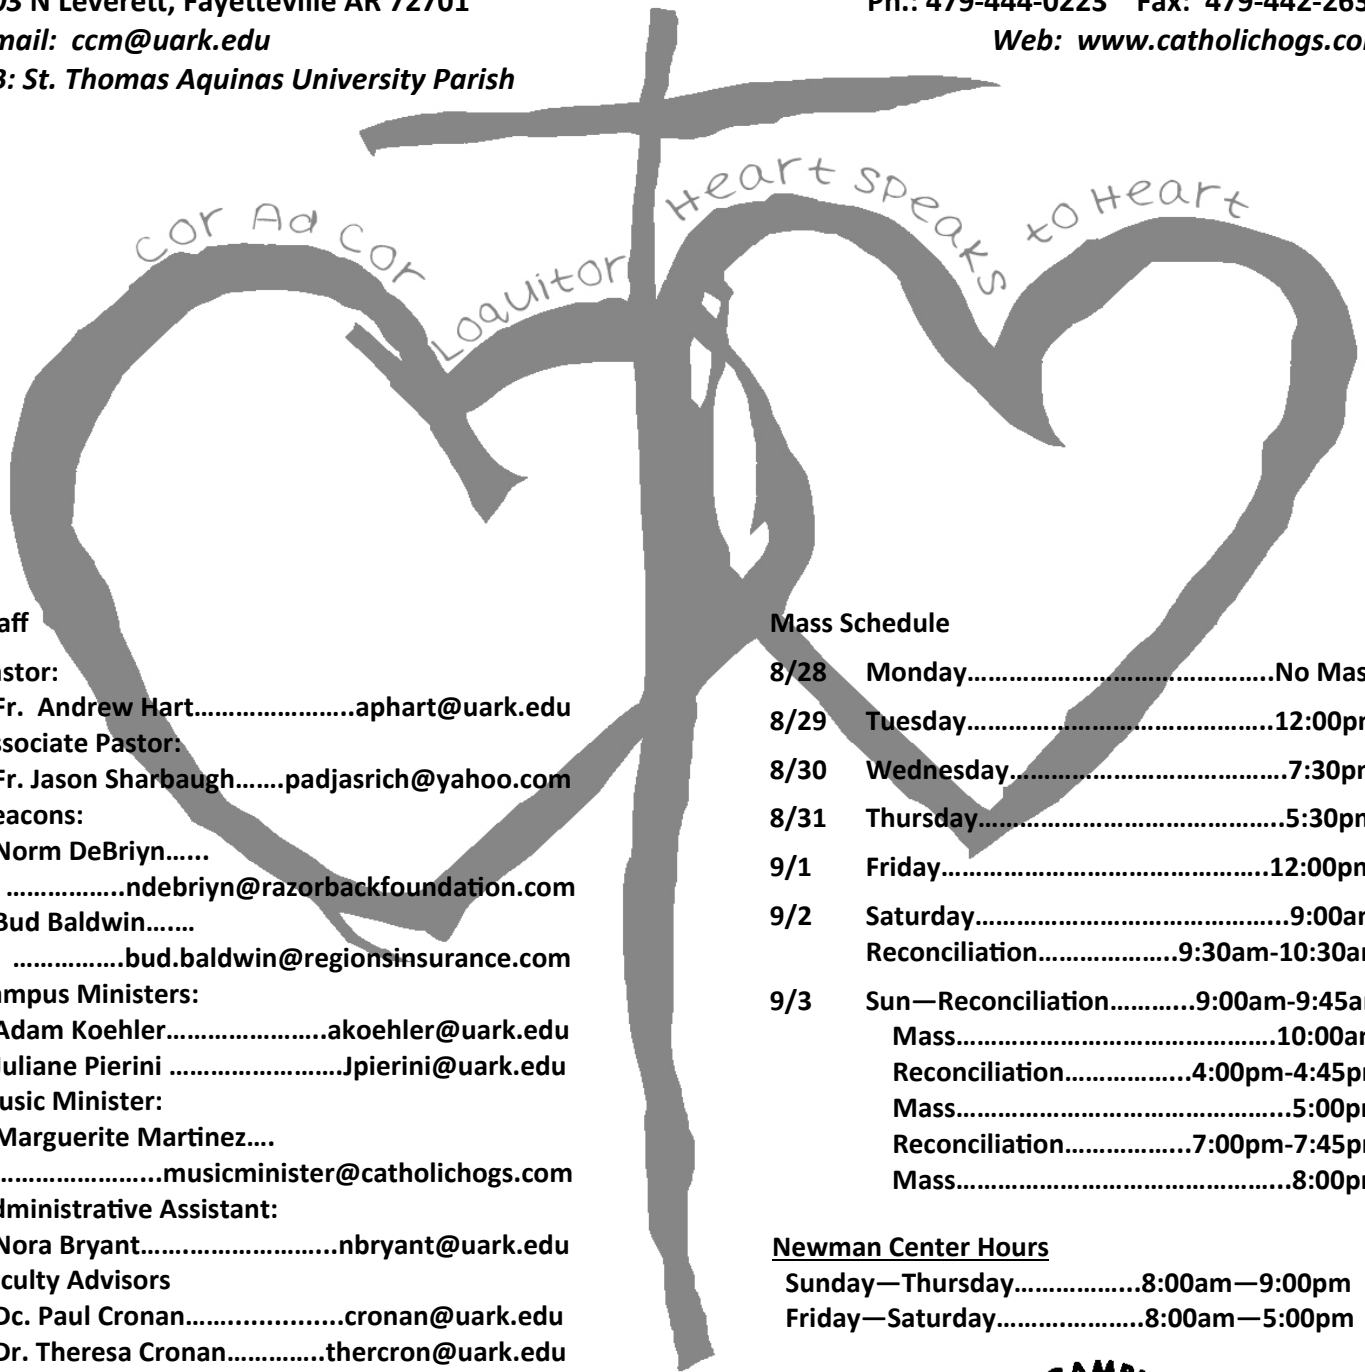 03 N Leverett, Fayetteville AR 72701
Ph.: 479-444-0223 Fax: 479-442-265
mail: ccm@uark.edu
Web: www.catholichogs.co
B: St. Thomas Aquinas University Parish
Cor Ad Cor
Loquitor
Heart Speaks
to Heart
aff
astor:
Fr. Andrew Hart…………………..aphart@uark.edu
ssociate Pastor:
Fr. Jason Sharbaugh…….padjasrich@yahoo.com
eacons:
Norm DeBriyn…...
……………..ndebriyn@razorbackfoundation.com
Bud Baldwin…….
…………….bud.baldwin@regionsinsurance.com
ampus Ministers:
Adam Koehler…………………..akoehler@uark.edu
Juliane Pierini …………………….Jpierini@uark.edu
usic Minister:
Marguerite Martinez….
…………………...musicminister@catholichogs.com
dministrative Assistant:
Nora Bryant……………………...nbryant@uark.edu
culty Advisors
Dc. Paul Cronan…….................cronan@uark.edu
Dr. Theresa Cronan…………..thercron@uark.edu
Mass Schedule
8/28 Monday…………………………………..No Mas
8/29 Tuesday…………………………………..12:00p
8/30 Wednesday……………………………….7:30p
8/31 Thursday…………………………………..5:30p
9/1 Friday……………………………………..12:00p
9/2 Saturday…………………………………...9:00a
Reconciliation………………..9:30am-10:30a
9/3 Sun—Reconciliation………...9:00am-9:45a
Mass…………………………………….10:00a
Reconciliation……………...4:00pm-4:45p
Mass……………………………………...5:00p
Reconciliation……………...7:00pm-7:45p
Mass……………………………………...8:00p
Newman Center Hours
Sunday—Thursday……………...8:00am—9:00pm
Friday—Saturday………………..8:00am—5:00pm